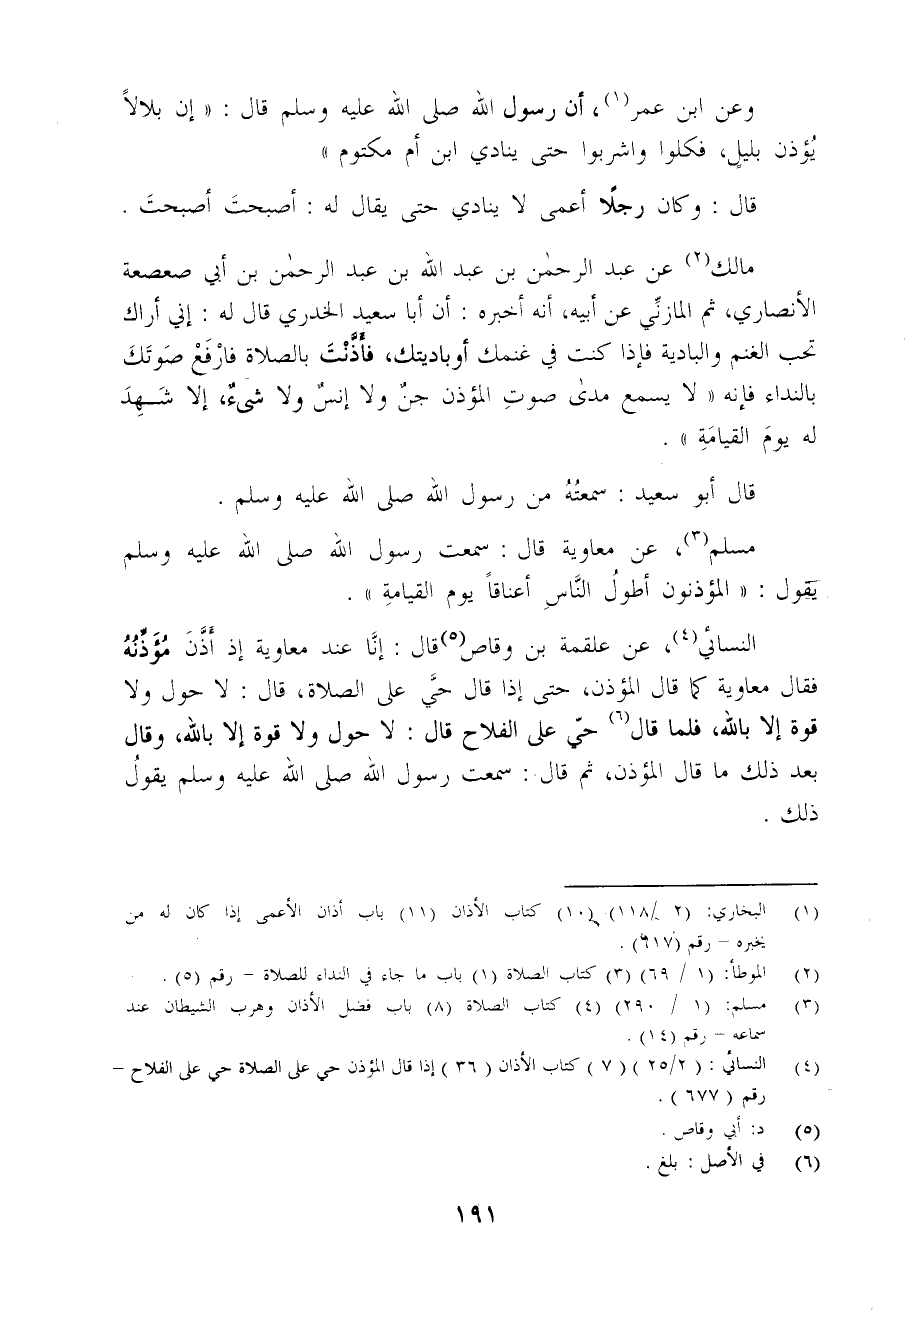 وعن ابن عمر(١)، أن رسول الله صلى الله عليه وسلم قال : « إن بلالاً
يُؤذن بليلٍ، فكلوا واشربوا حتى ينادي ابن أم مكتوم »
قال : وكان رجلًا أعمى لا ينادي حتى يقال له : أصبحتَ أصبحتَ .
مالك(٢) عن عبد الرحمٰن بن عبد الله بن عبد الرحمٰن بن أبي صعصعة
الأنصاري، ثم المازنِّي عن أبيه، أنه أخبره : أن أبا سعيد الخدري قال له : إني أراك
تحب الغنم والبادية فإذا كنت في غنمك أوباديتك، فأَذَّنْتَ بالصلاة فارْفَعْ صَوتَكَ
بالنداء فإنه « لا يسمع مدىٰ صوتِ المؤذن جنٌ ولا إنسٌ ولا شىءٌ، إلا شَهِدَ
له يومَ القيامَةِ » .
قال أبو سعيد : سمعتُهُ من رسول الله صلى الله عليه وسلم .
مسلم(٣)، عن معاوية قال : سمعت رسول الله صلى الله عليه وسلم
يَقول : « المؤذنون أطولُ النَّاسِ أعناقاً يوم القيامةِ » .
النسائي(٤)، عن علقمة بن وقاص(٥)قال : إنَّا عند معاوية إذ أَذَّنَ مُؤَذِّنُهُ
فقال معاوية كما قال المؤذن، حتى إذا قال حيَّ على الصلاة، قال : لا حول ولا
قوة إلا بالله، فلما قال(٦) حيّ على الفلاح قال : لا حول ولا قوة إلا بالله، وقال
بعد ذلك ما قال المؤذن، ثم قال : سمعت رسول الله صلى الله عليه وسلم يقولُ
ذلك .
(١) البخاري: (٢ /١١٨) (١٠) كتاب الأذان (١١) باب أذان الأعمى إذا كان له من
يخبره – رقم (٦١٧) .
(٢) الموطأ: (١ / ٦٩) (٣) كتاب الصلاة (١) باب ما جاء في النداء للصلاة – رقم (٥) .
(٣) مسلم: (١ / ٢٩٠) (٤) كتاب الصلاة (٨) باب فضل الأذان وهرب الشيطان عند
سماعه – رقم (١٤) .
(٤) النسائي : ( ٢/٢٥ ) ( ٧ ) كتاب الأذان ( ٣٦ ) إذا قال المؤذن حي على الصلاة حي على الفلاح –
رقم ( ٦٧٧ ) .
(٥) د: أبي وقاص .
(٦) في الأصل : بلغ .
١٩١